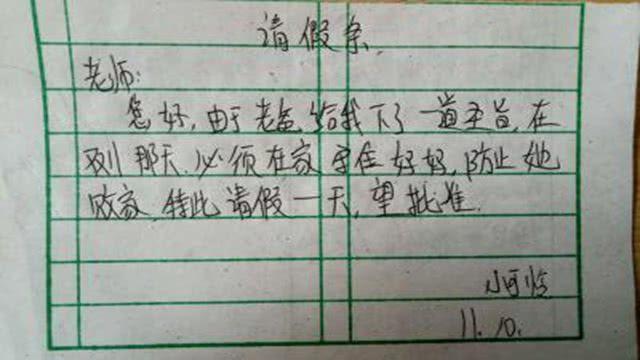 请假条.
老师:
您好,由于老爸给我下了一道圣旨,在
双11那天.必须在家守住妈妈,防止她
败家.特此请假一天,望批准.
小可怜
11.10.